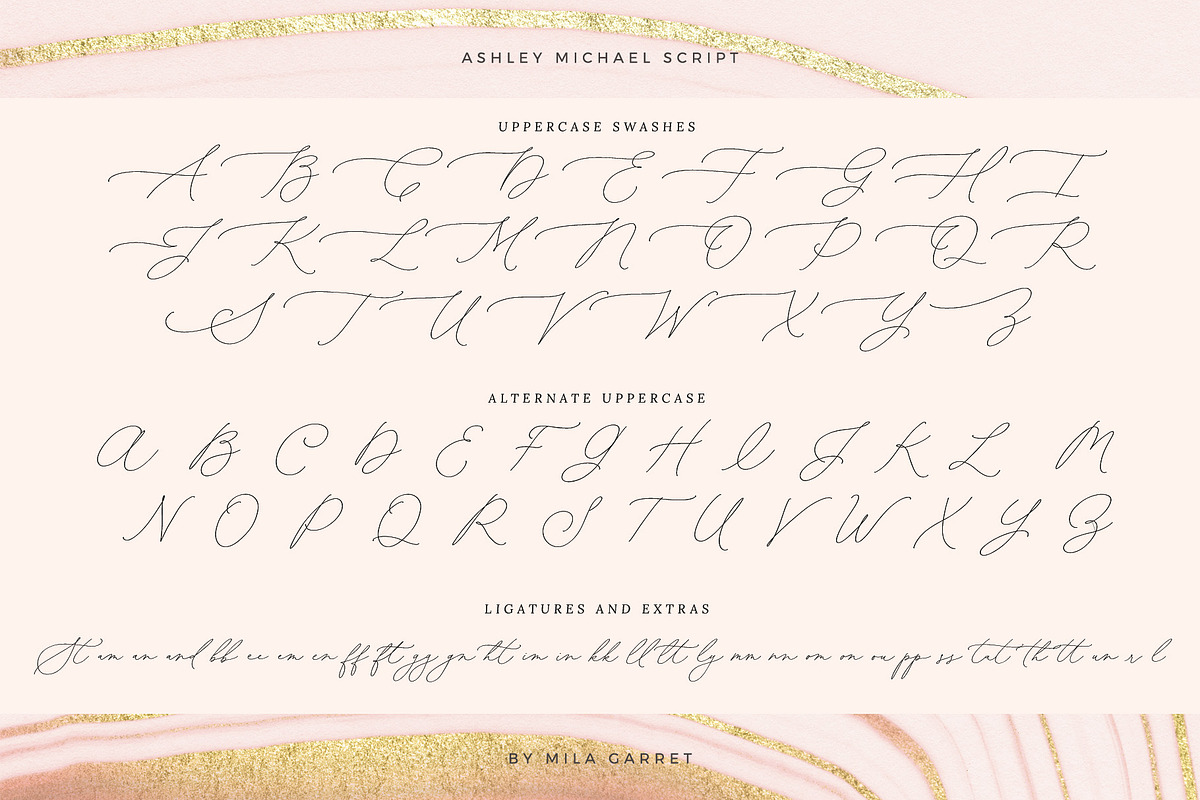 ASHLEY MICHAEL SCRIPT
UPPERCASE SWASHES
A B C D E F G H I
J K L M N O P Q R
S T U V W X Y Z
ALTERNATE UPPERCASE
A B C D E F G H I J K L M
N O P Q R S T U V W X Y Z
LIGATURES AND EXTRAS
St am an and bb ee em en ff ft gg gn ht im in kk ll lt ly mm nn om on ou pp ss tat th tt un r l
BY MILA GARRET